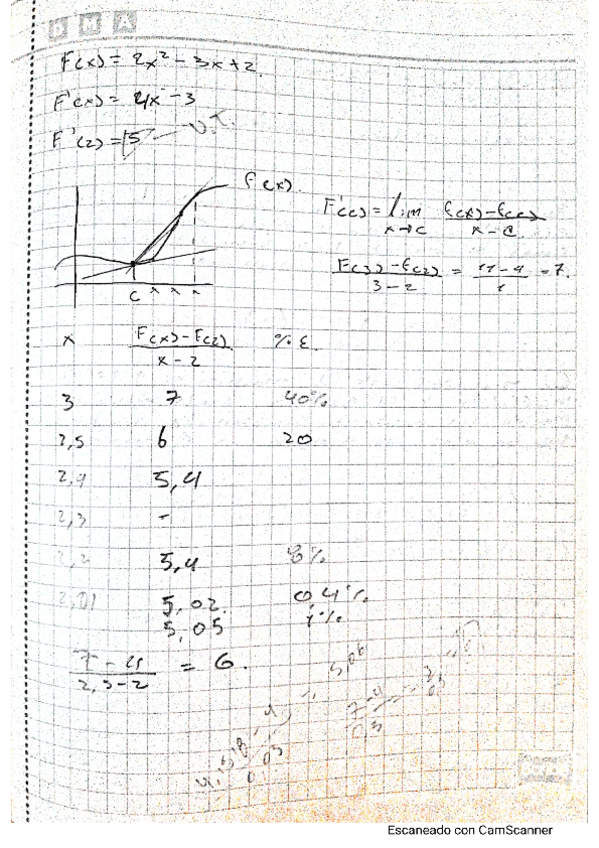 D M A
F(x) = 2x² - 3x + 2.
F'(x) = 4x - 3
F'(2) = 5 V.T.
f(x).
F'(c) = lim f(x) - f(c)
x→c x - c
F(3) - f(2) = 11 - 4 = 7.
3 - 2 1
C x x x
x F(x) - F(2) % ε
x - 2
3 7 40%
2,5 6 20
2,4 5,4
2,3 -
2,2 5,4 8%
2,01 5,02. 0 4%
5,05 1%
7 - 4 = 6.
2,5 - 2
5,06
Escaneado con CamScanner